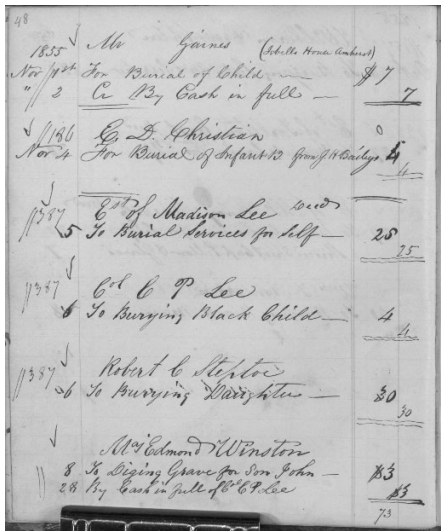 48
1855 Mr Gaines (Isbells House Amherst)
Nov 1st For Burial of Child — $ 7
" 2 Cr By Cash in full — 7
186 C. D. Christian 0
Nov 4 For Burial of Infant B from J H Baileys 4
4
387 Est of Madison Lee Decd
5 To Burial Services for Self — 25
25
387 Col C P Lee
6 To Burying Black Child — 4
4
387 Robert C Steptoe
6 To Burying Daughter — 30
30
Maj Edmond Winston
8 To Diging Grave for Son John — $3
28 By Cash in full of Col C P Lee $3
73